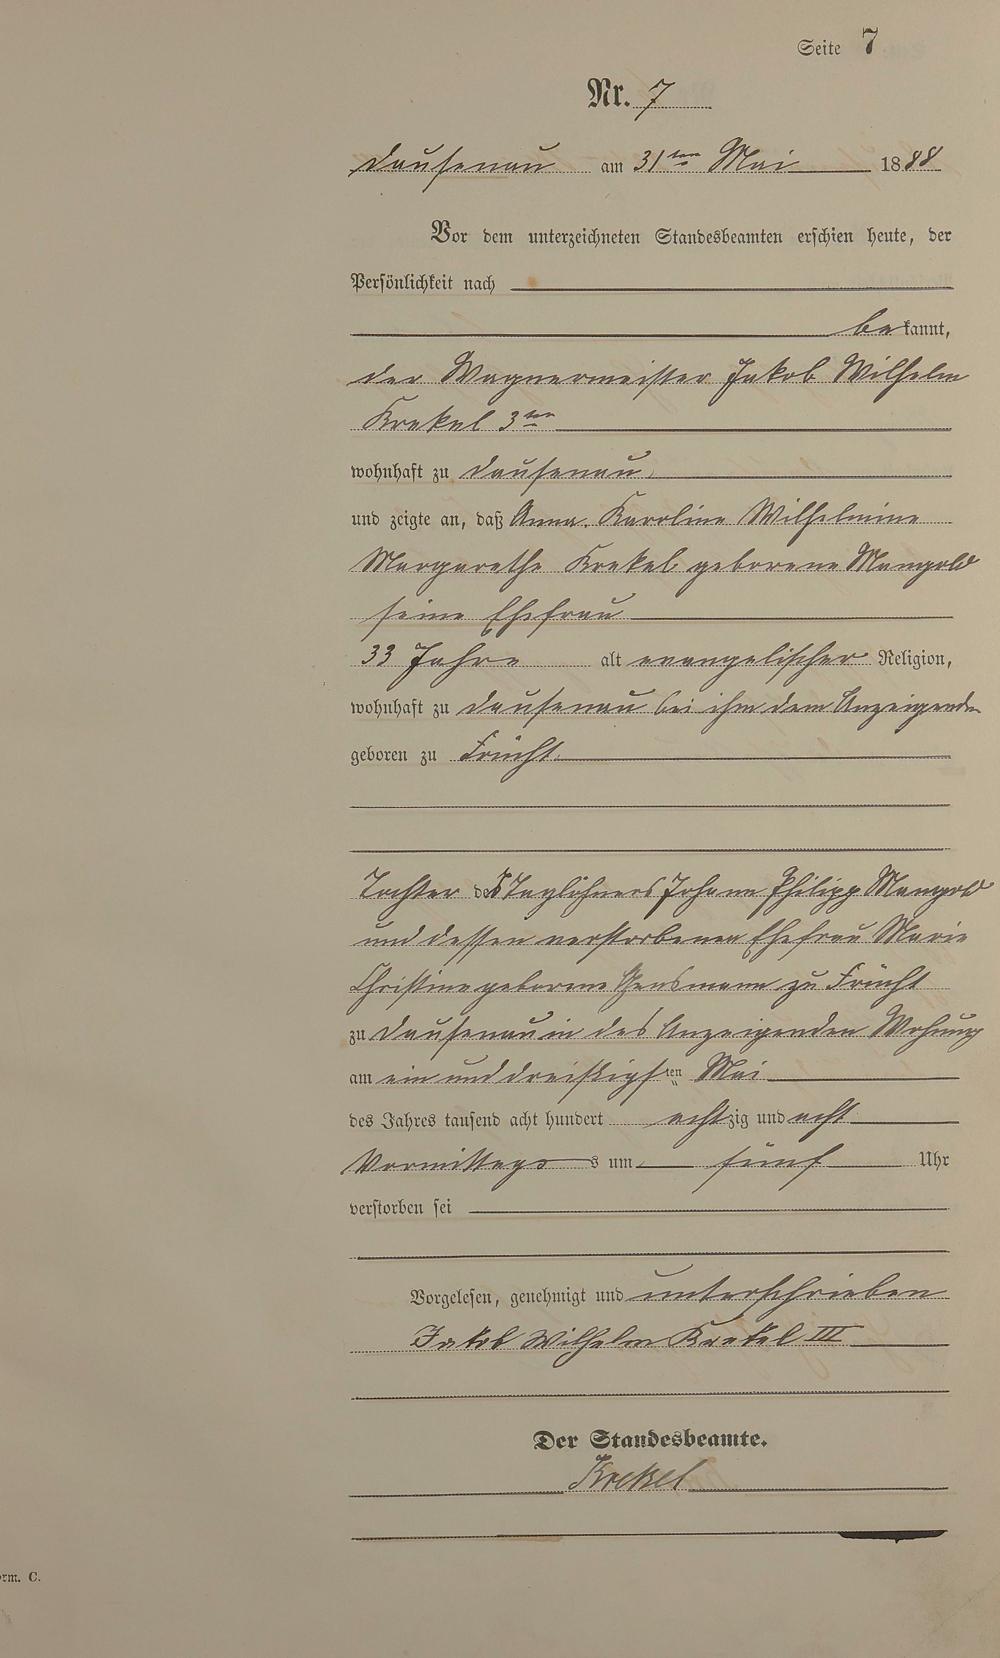 Seite 7
Nr. 7
Dausenau am 31ten Mai 1888
Vor dem unterzeichneten Standesbeamten erschien heute, der
Persönlichkeit nach
bekannt,
der Wagnermeister Jakob Wilhelm
Krekel 3ter
wohnhaft zu Dausenau,
und zeigte an, daß Anna Karoline Wilhelmine
Margarethe Krekel geborene Mangold
seine Ehefrau
33 Jahre alt evangelischer Religion,
wohnhaft zu Dausenau bei ihm dem Anzeigenden
geboren zu Frücht
Tochter des Taglöhners Johann Philipp Mangold
und dessen verstorbenen Ehefrau Marie
Christine geborene zu Frücht
zu Dausenau in des Anzeigenden Wohnung
am ein und dreißigsten Mai
des Jahres tausend acht hundert achtzig und acht
Vormittags um fünf Uhr
verstorben sei
Vorgelesen, genehmigt und unterschrieben
Jakob Wilhelm Krekel III
Der Standesbeamte.
Krekel
rm. C.